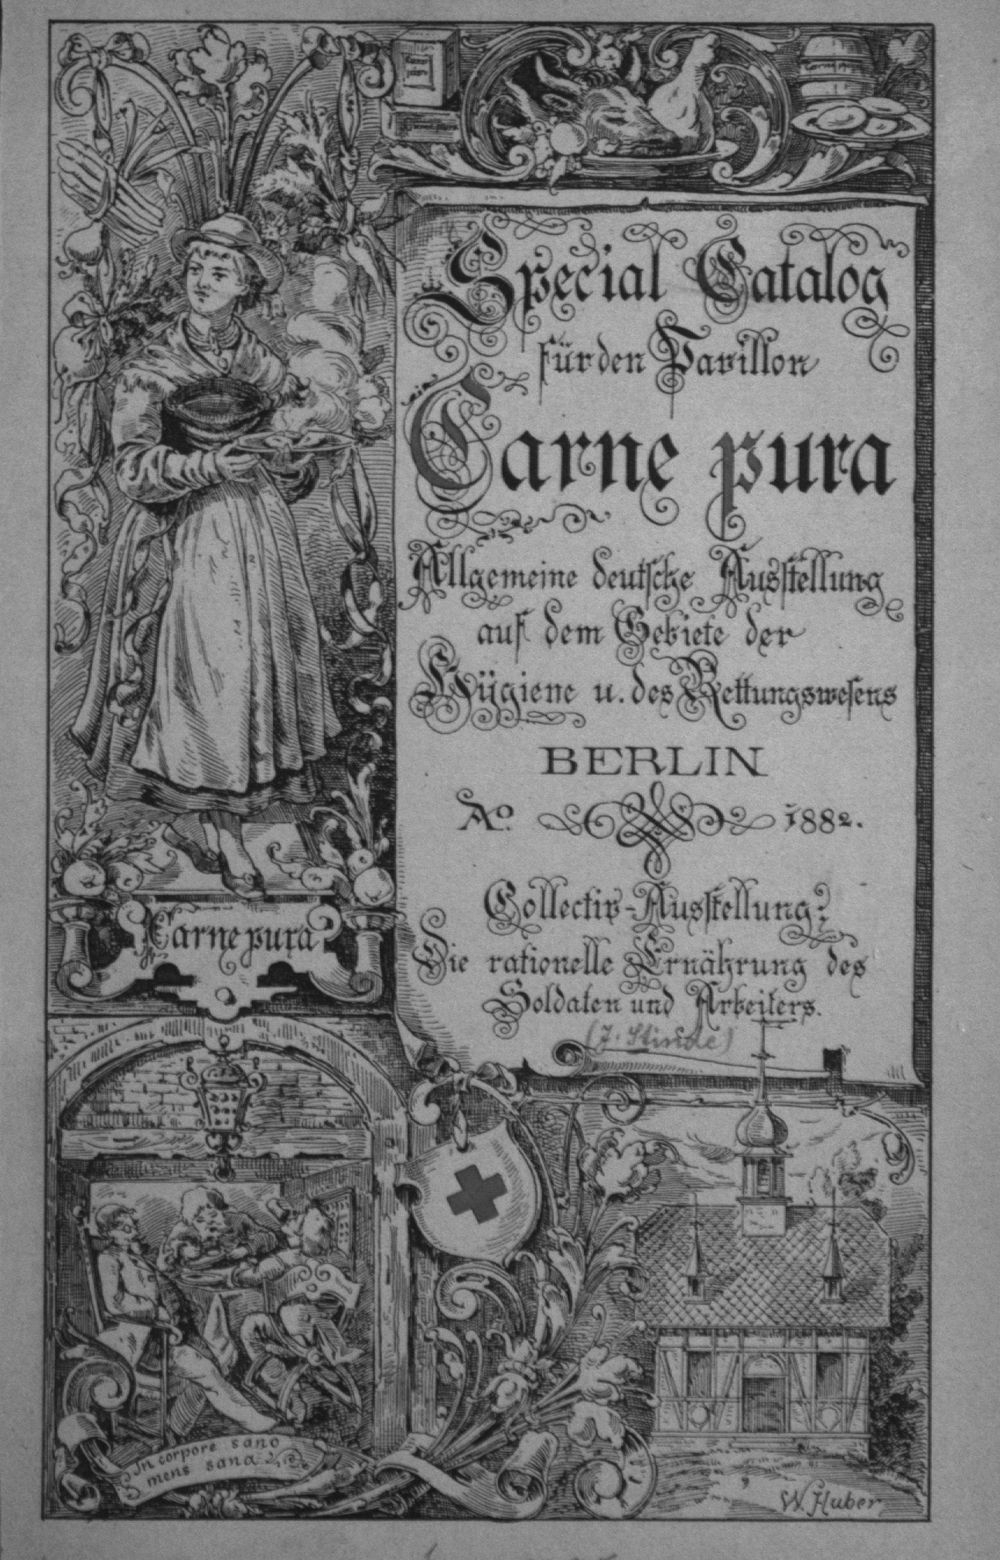 Special Catalog
für den Pavillon
Carne pura
Allgemeine deutsche Ausstellung
auf dem Gebiete der
Hÿgiene u. des Rettungswesens
BERLIN
Ao. 1882.
Collectiv-Ausstellung:
Die rationelle Ernährung des
Soldaten und Arbeiters.
(J. Stinde)
Carne pura
In corpore sano
mens sana
W. Huber